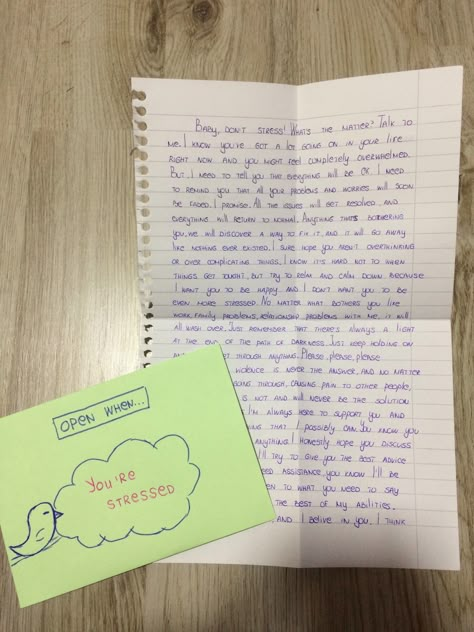 BABY, DON'T STRESS! WHATS THE MATTER? TALK TO
ME. I KNOW YOU'VE GOT A LOT GOING ON IN YOUR LIFE
RIGHT NOW AND YOU MIGHT FEEL COMPLETELY OVERWHELMED.
BUT, I NEED TO TELL YOU THAT EVERYTHING WILL BE OK. I NEED
TO REMIND YOU THAT ALL YOUR PROBLEMS AND WORRIES WILL SOON
BE FADED, I PROMISE. ALL THE ISSUES WILL GET RESOLVED, AND
EVERYTHING WILL RETURN TO NORMAL. ANYTHING THATS BOTHERING
YOU, WE WILL DISCOVER A WAY TO FIX IT, AND IT WILL GO AWAY
LIKE NOTHING EVER EXISTED. I SURE HOPE YOU AREN'T OVERTHINKING
OR OVER COMPLICATING THINGS. I KNOW IT'S HARD NOT TO WHEN
THINGS GET TOUGHT, BUT TRY TO RELAX AND CALM DOWN BECAUSE
I WANT YOU TO BE HAPPY AND I DON'T WANT YOU TO BE
EVEN MORE STRESSED. NO MATTER WHAT BOTHERS YOU LIKE
WORK, FAMILY PROBLEMS, RELATIONSHIP PROBLEMS WITH ME, IT WILL
ALL WASH OVER. JUST REMEMBER THAT THERE'S ALWAYS A LIGHT
AT THE END OF THE PATH OR DARKNESS. JUST KEEP HOLDING ON
THROUGH ANYTHING. PLEASE, PLEASE, PLEASE
VIOLENCE IS NEVER THE ANSWER, AND NO MATTER
GOING THROUGH, CAUSING PAIN TO OTHER PEOPLE,
IS NOT AND WILL NEVER BE THE SOLUTION
I'M ALWAYS HERE TO SUPPORT YOU AND
THAT I POSSIBLY CAN. YOU KNOW YOU
ANYTHING. I HONESTLY HOPE YOU DISCUSS
I'LL TRY TO GIVE YOU THE BEST ADVICE
ASSISTANCE YOU KNOW I'LL BE
TO WHAT YOU NEED TO SAY
THE BEST OF MY ABILITIES.
AND I BELIVE IN YOU. I THINK
OPEN WHEN...
YOU'RE
STRESSED